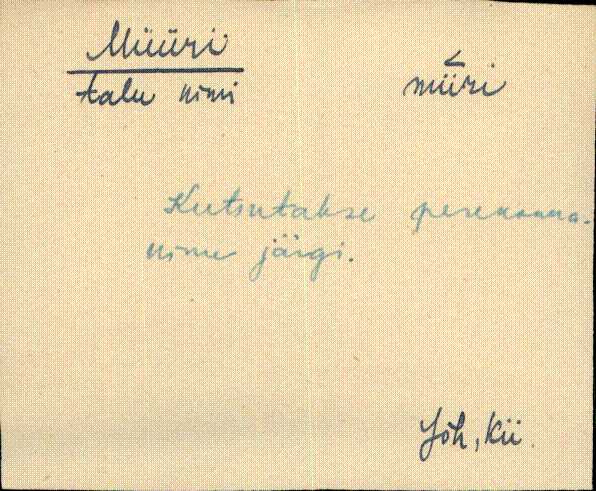 Müüri
talu nimi
müri
Kutsutakse perekonna-
nime järgi.
Jõh, Kii